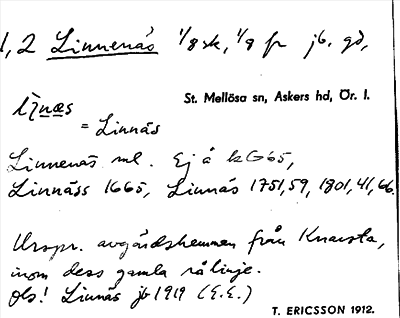 1, 2 Linnenäs 1/8 sk, 1/8 fr jb. gd,
St. Mellösa sn, Askers hd, Ör. l.
= Linnäs
Linnenäs ml. Ej å kG65,
Linnäss 1665, Linnäs 1751,59, 1801,41,66.
Urspr. avgärdshemman från Knaista,
inom dess gamla rålinje.
Obs! Linnäs jb 1919 (E.E.)
T. ERICSSON 1912.